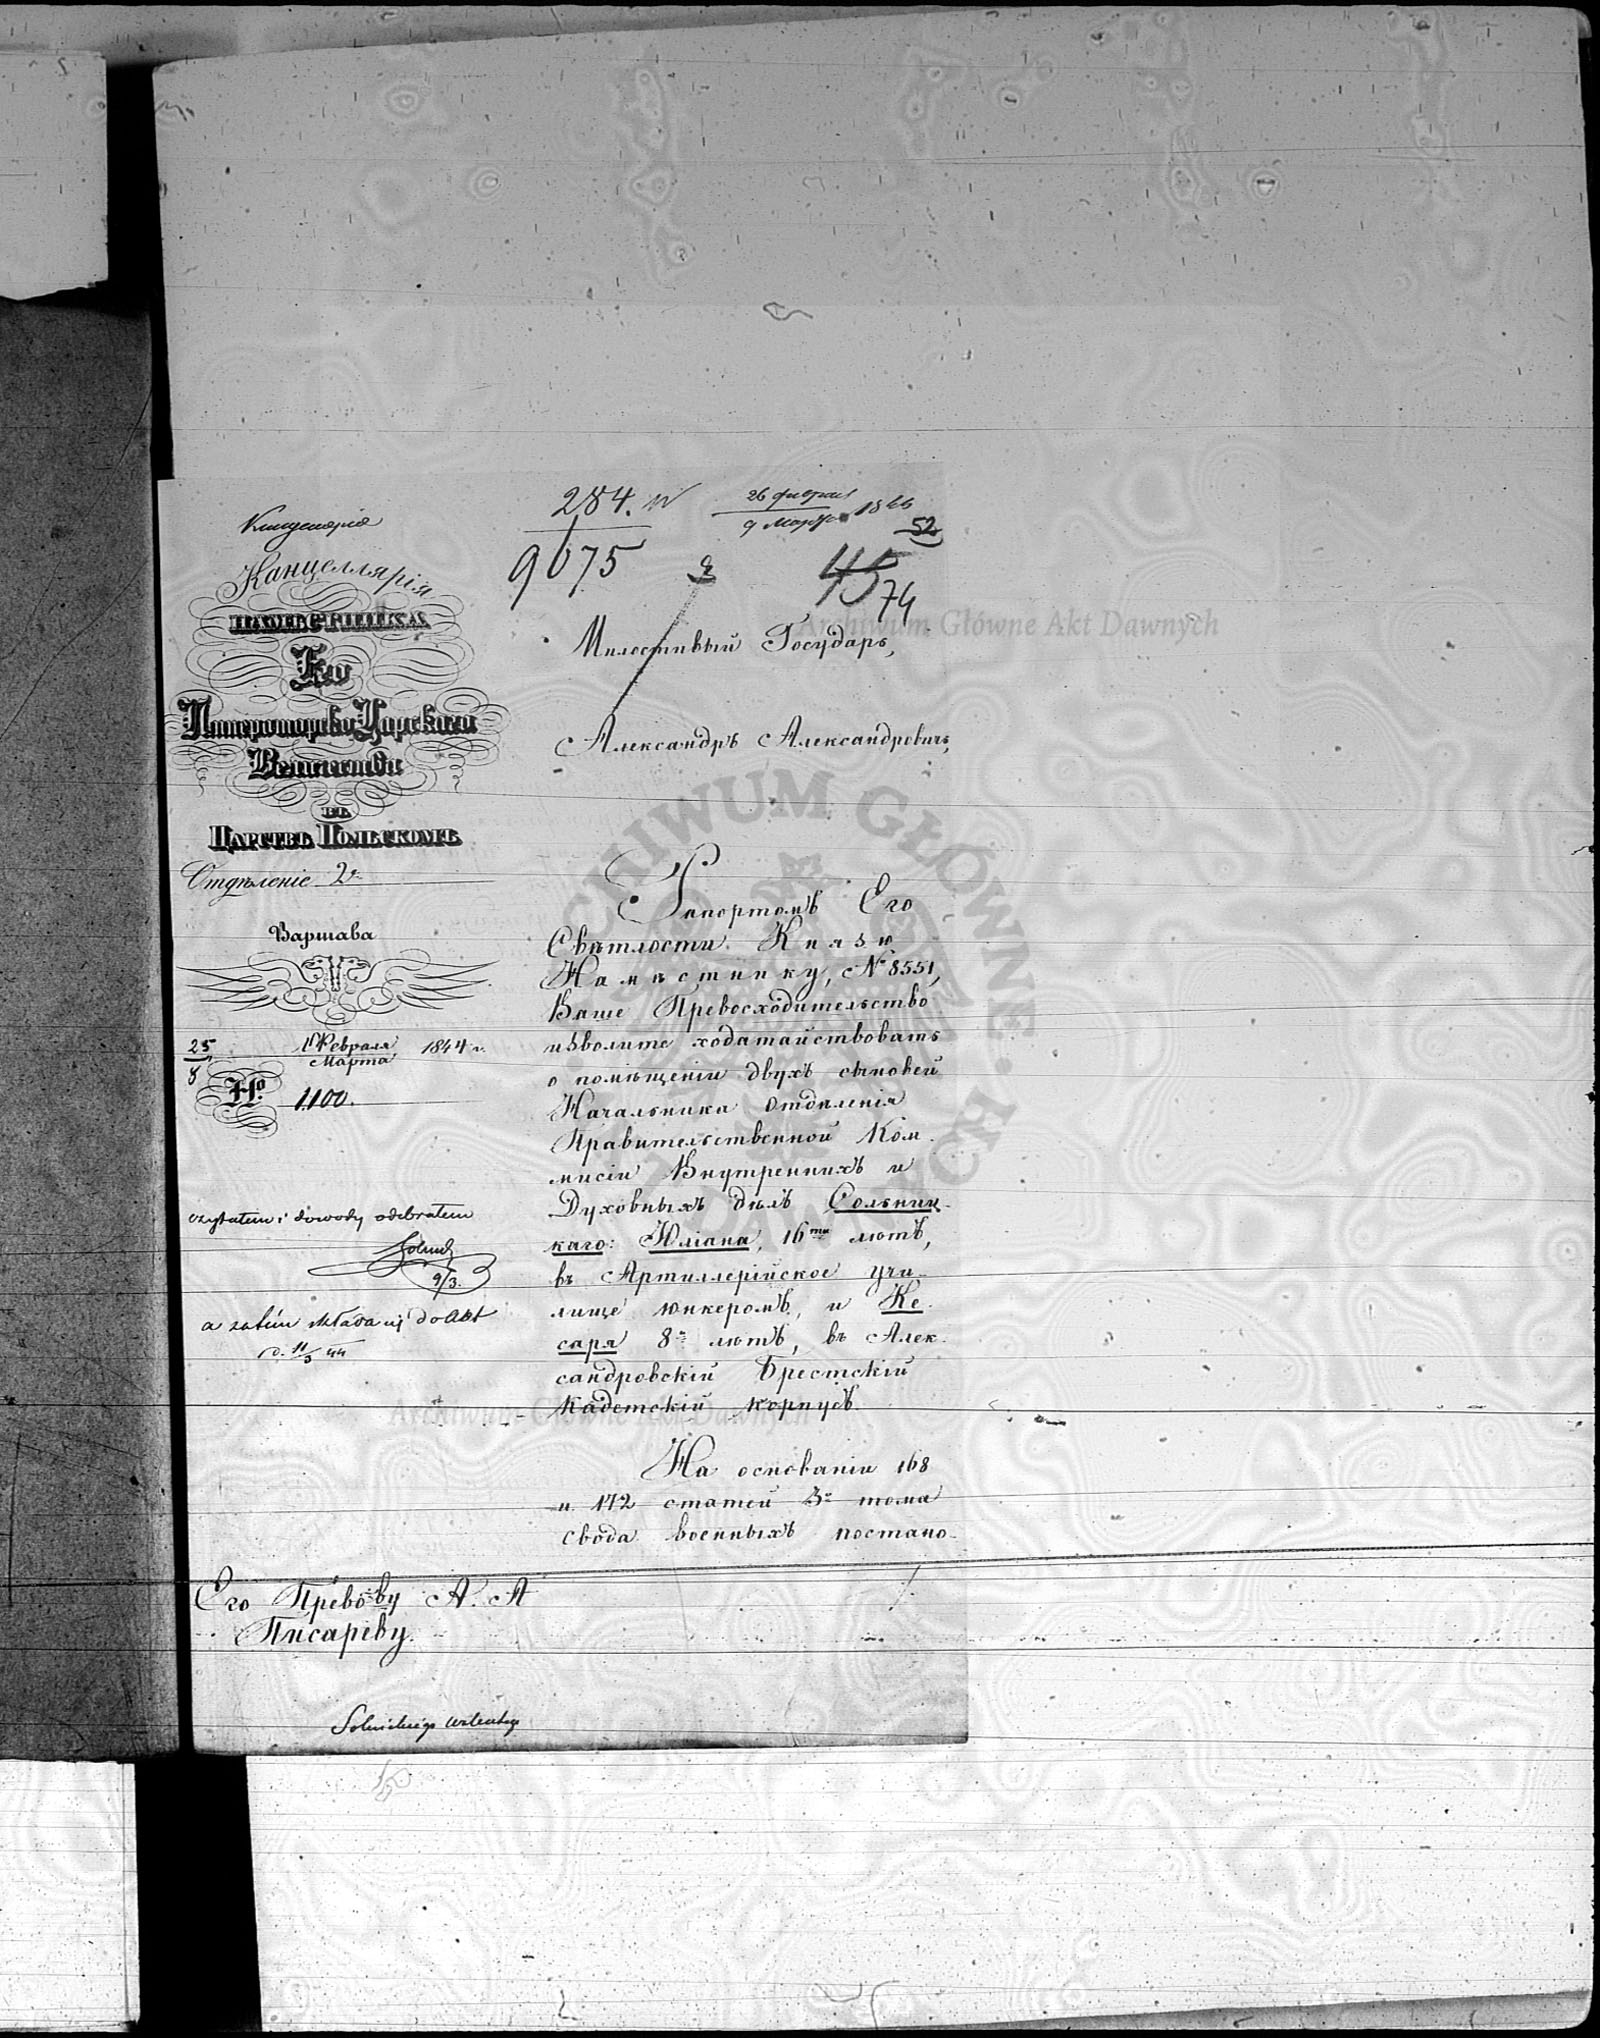 284.
9075
26 февраля
9 Марта 1844
52
45
74
Канцелярія
НАМѢСТНИКА
Его
Императорско Царскаго
Величества
ВЪ
ЦАРСТВѢ ПОЛЬСКОМЪ
Отдѣленіе 2е
Варшава
25 Февраля
8 Марта 1844 г.
No. 1100.
czytałem i dowody odebrałem
9/3.
a zatém składa się do akt
d. 11/3 44
Милостивый Государь,
Александръ Александровичь,
Рапортомъ Его
Свѣтлости Князю
Намѣстнику, № 8551,
Ваше Превосходительство
изволите ходатайствовать
о помѣщеніи двухъ сыновей
Начальника Отдѣленія
Правительственной Ком-
мисіи Внутреннихъ и
Духовныхъ дѣлъ Сольниц-
каго: Юліана, 16ти лѣтъ,
въ Артиллерійское учи-
лище юнкеромъ, и Ке-
саря 8ми лѣтъ, въ Алек-
сандровскій Брестскій
Кадетскій корпусъ.
На основаніи 168
и 172 статей 3го тома
свода военныхъ постано-
Его Прев-ву А. А
Писареву.
Solnickiego
Archiwum Główne Akt Dawnych
ARCHIWUM GŁÓWNE AKT DAWNYCH
Archiwum Główne Akt Dawnych